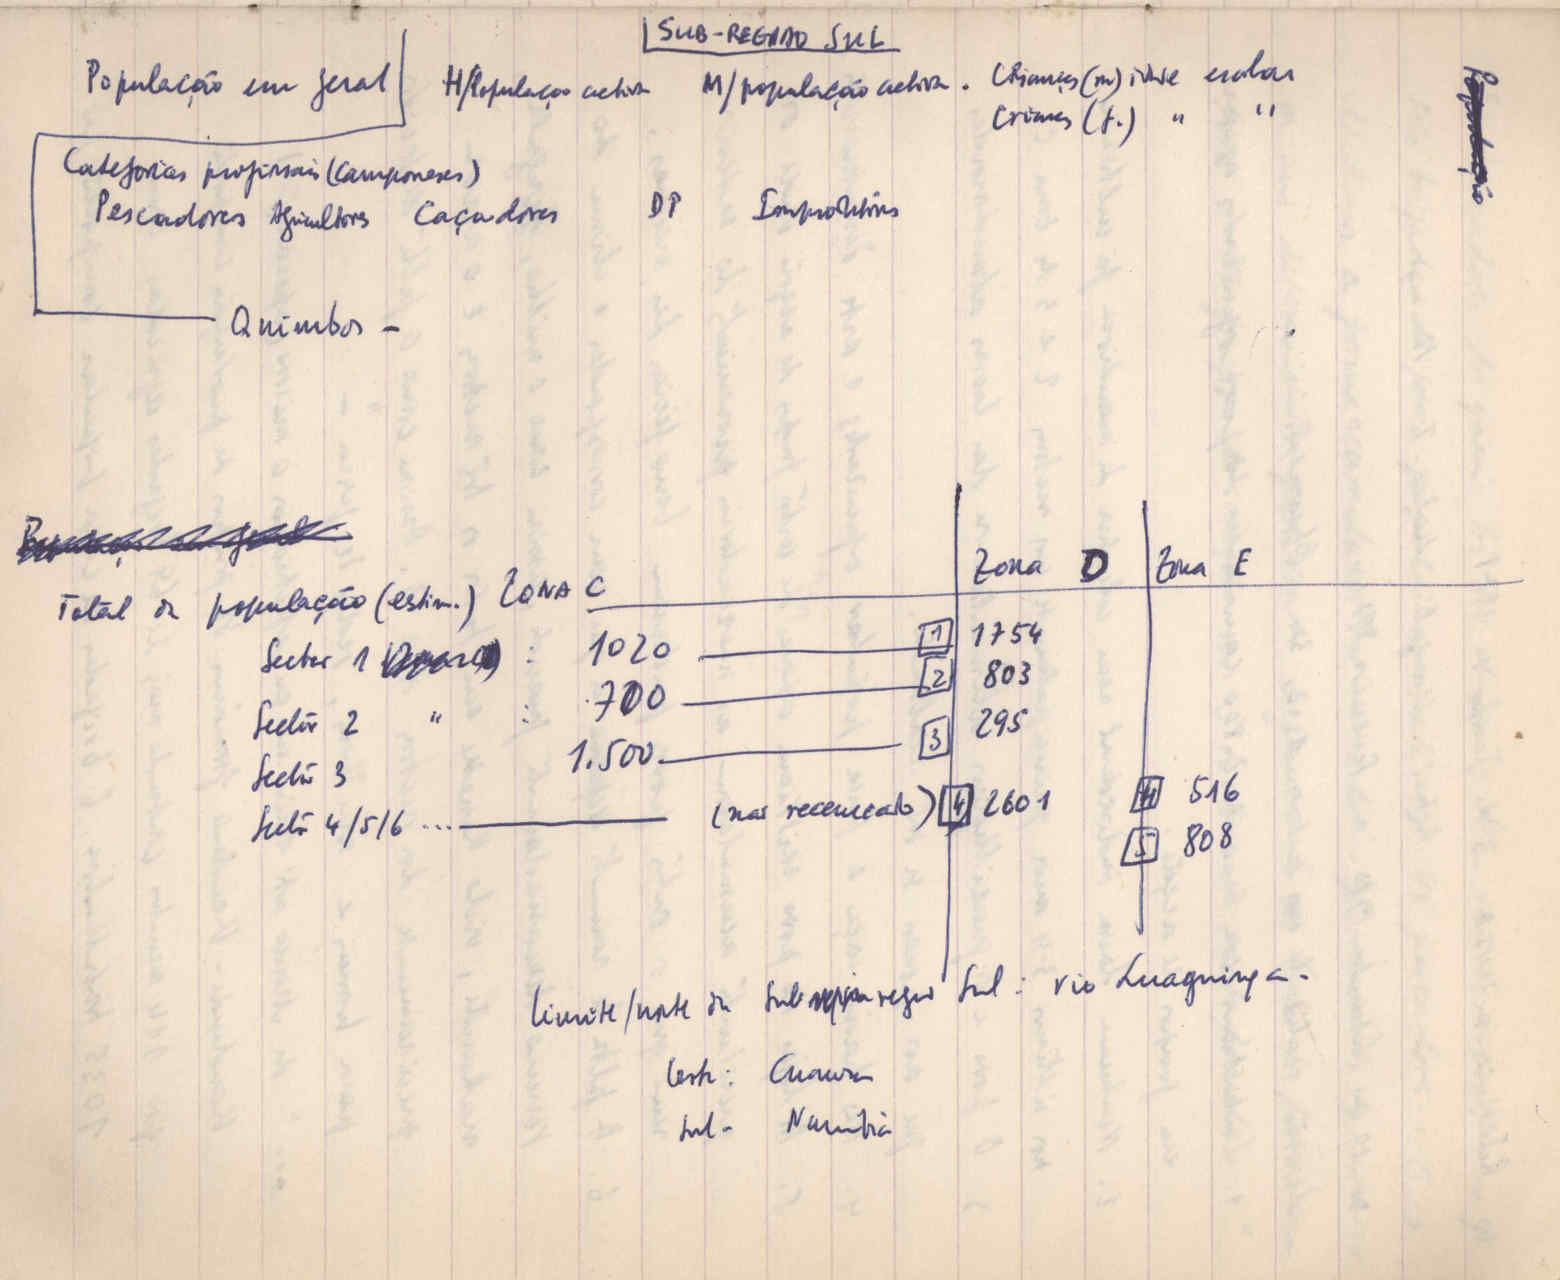 SUB-REGIÃO SUL
População em geral H/População activa M/população activa . Crianças (m) idade escolar
Crianças (f.) " "
Categorias profissionais (camponeses)
Pescadores Agricultores Caçadores DP Improdutivos
Quimbos -
Zona D Zona E
Total da população (estim.) ZONA C
Sector 1 : 1020 1 1754
Sector 2 " : 700 2 803
Sector 3 1.500 3 295
Sector 4/5/6 ... (não recenceado) 4 2601 4 516
5 808
Limite/norte da Sub região Sul : rio Luaguinga .
leste : Cuando
sul - Namíbia